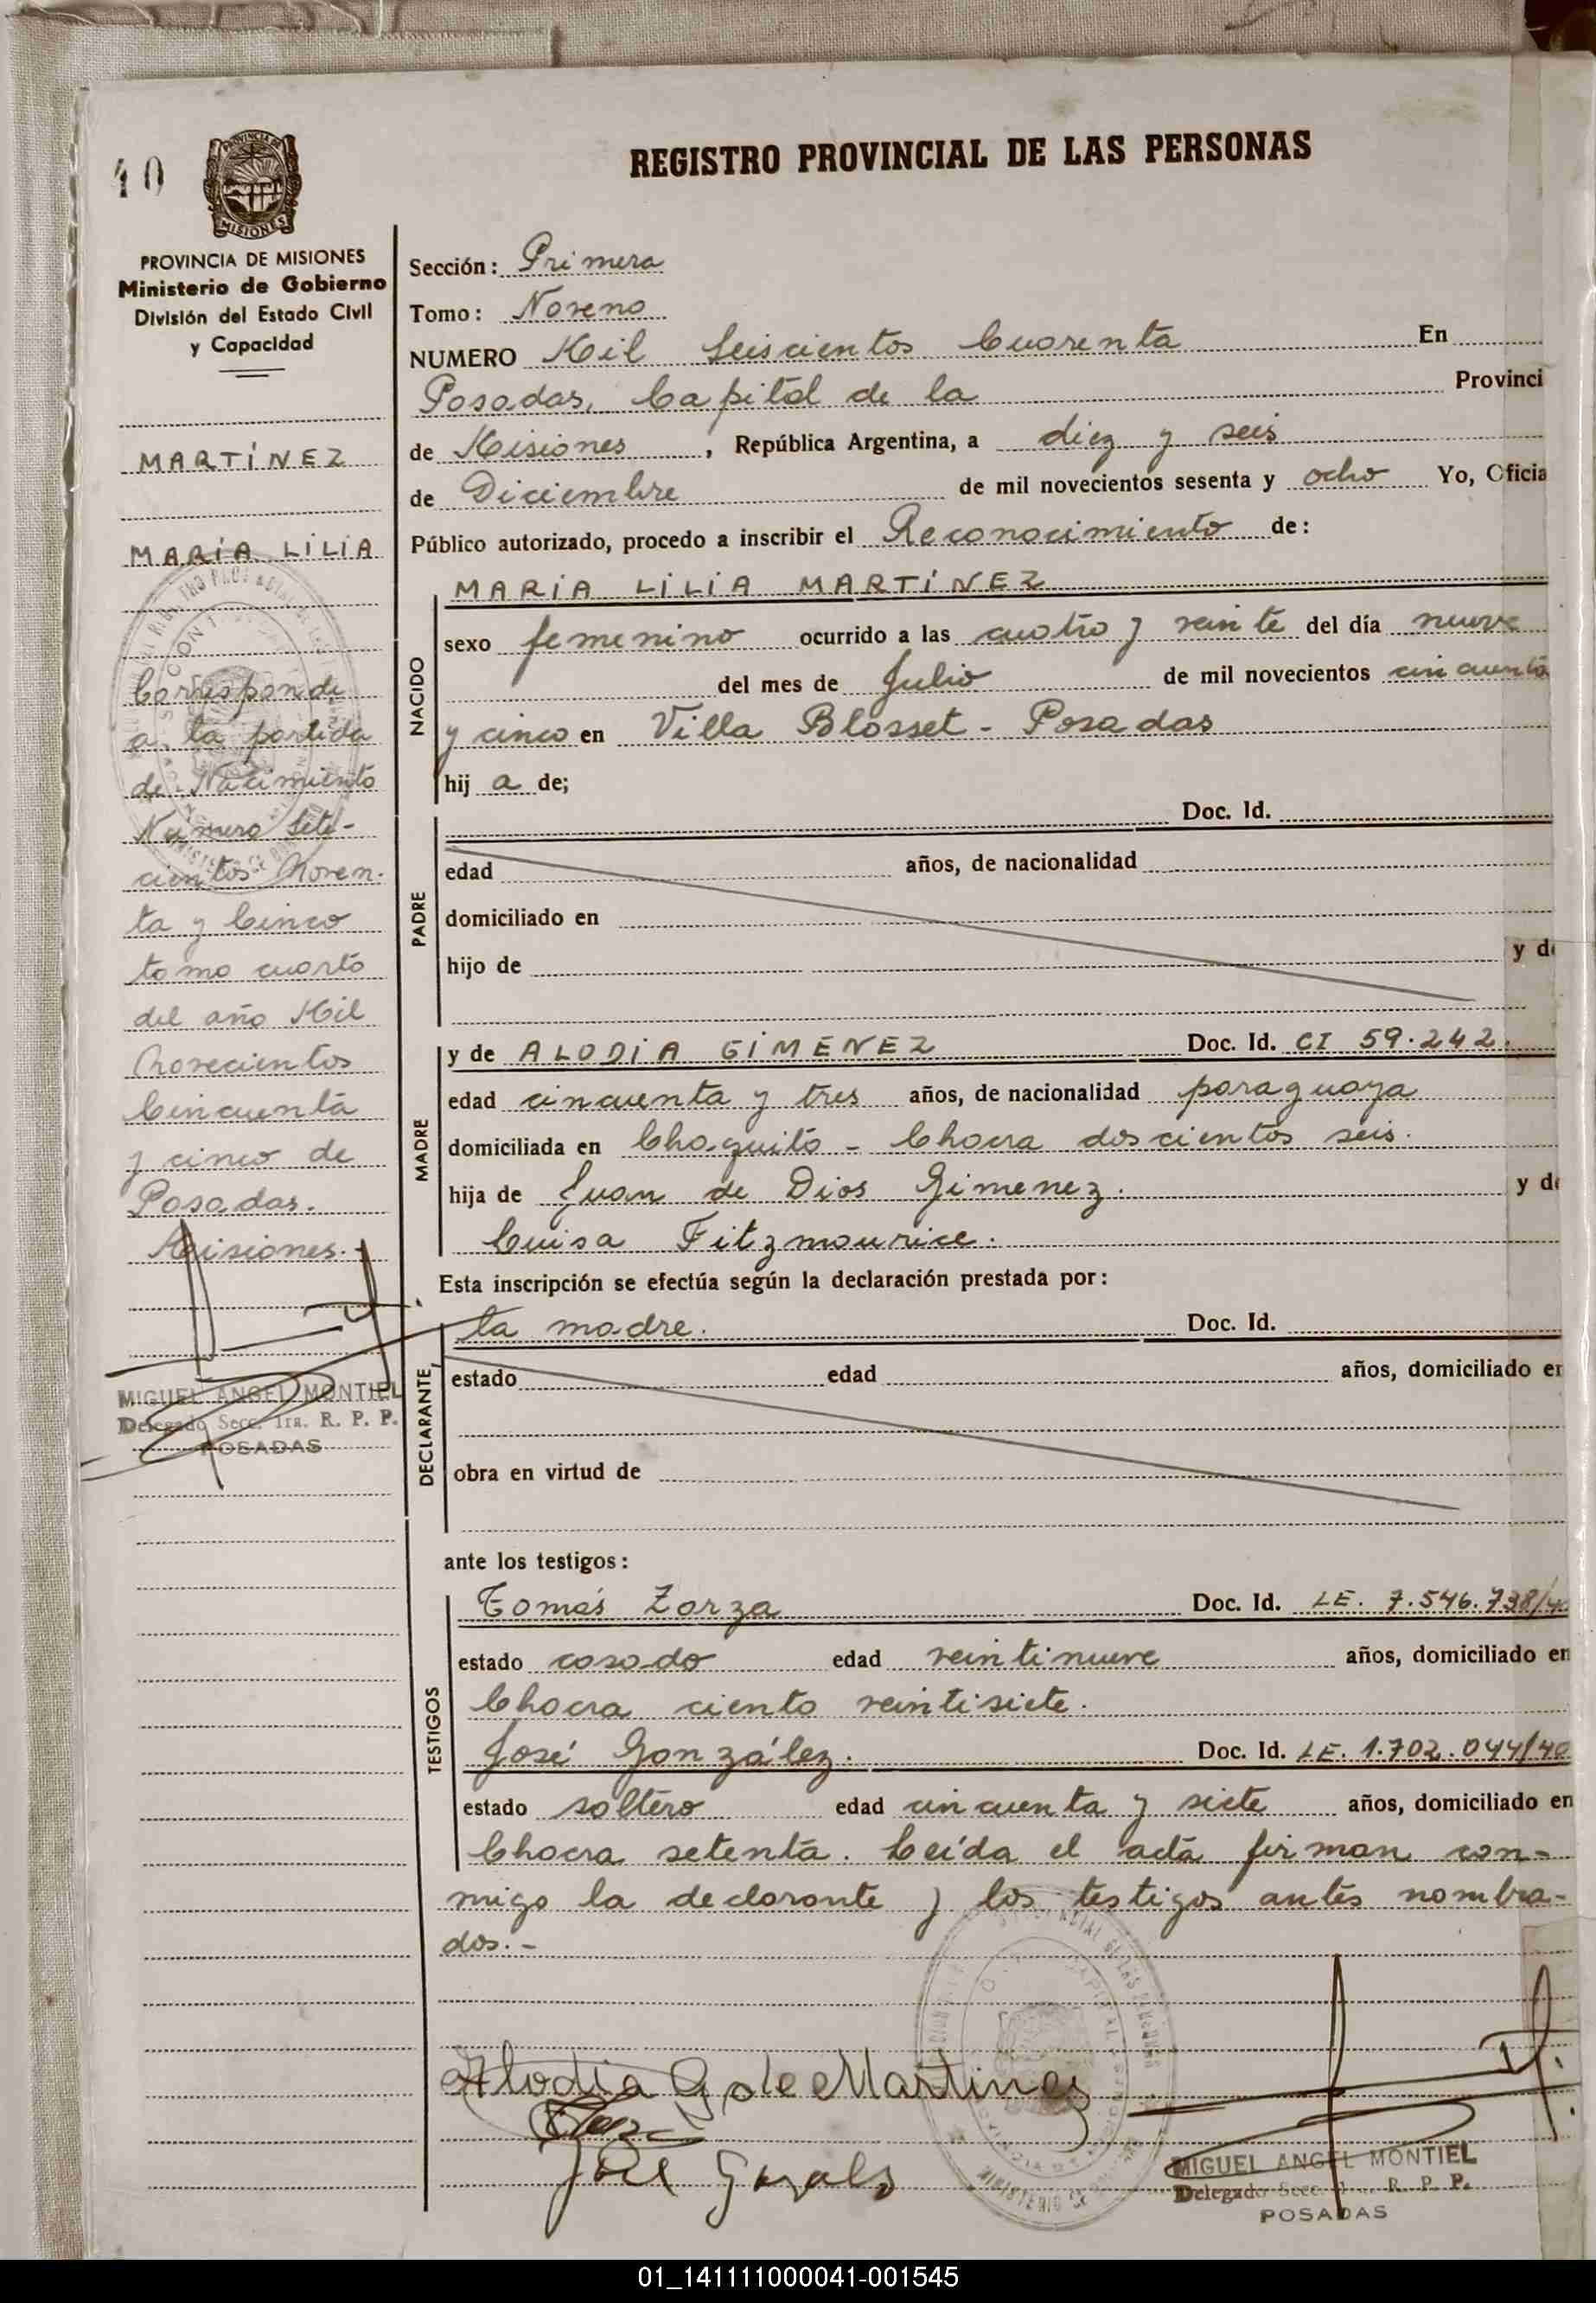 40
PROVINCIA DE
MISIONES
REGISTRO PROVINCIAL DE LAS PERSONAS
PROVINCIA DE MISIONES
Ministerio de Gobierno
División del Estado Civil
y Capacidad
MARTÍNEZ
MARÍA LILIA
Corresponde
a la partida
de Nacimiento
Numero Sete-
cientos Noven-
ta y Cinco
tomo cuarto
del año Mil
Novecientos
Cincuenta
y cinco de
Posadas.
Misiones.-
MIGUEL ANGEL MONTIEL
Delegado Secc. 1ra. R. P. P.
POSADAS
Sección: Primera
Tomo: Noveno
NUMERO Mil Seiscientos Cuarenta En
Posadas, Capital de la Provinci
de Misiones, República Argentina, a diez y seis
de Diciembre de mil novecientos sesenta y ocho Yo, Oficia
Público autorizado, procedo a inscribir el Reconocimiento de:
NACIDO
MARIA LILIA MARTÍNEZ
sexo femenino ocurrido a las cuatro y veinte del día nueve
del mes de Julio de mil novecientos cincuenta
y cinco en Villa Blosset - Posadas
hij a de;
PADRE
Doc. Id.
edad años, de nacionalidad
domiciliado en
hijo de y de
MADRE
y de ALODIA GIMENEZ Doc. Id. CI 59.242.
edad cincuenta y tres años, de nacionalidad paraguaya
domiciliada en Chaquito - Chacra doscientos seis.
hija de Juan de Dios Gimenez. y de
Luisa Fitzmourice.
Esta inscripción se efectúa según la declaración prestada por:
DECLARANTE
la madre. Doc. Id.
estado edad años, domiciliado en
obra en virtud de
ante los testigos:
TESTIGOS
Tomás Zarza Doc. Id. LE. 7.546.738/40
estado casado edad veintinueve años, domiciliado en
Chacra ciento veintisiete.
José González. Doc. Id. LE. 1.702.044/40
estado soltero edad cincuenta y siete años, domiciliado en
Chacra setenta. Leída el acta firman con-
migo la declarante y los testigos antes nombra-
dos.-
Alodia G de Martinez
José Gonzals
MIGUEL ANGEL MONTIEL
Delegado Secc. R. P. P.
POSADAS
01_141111000041-001545